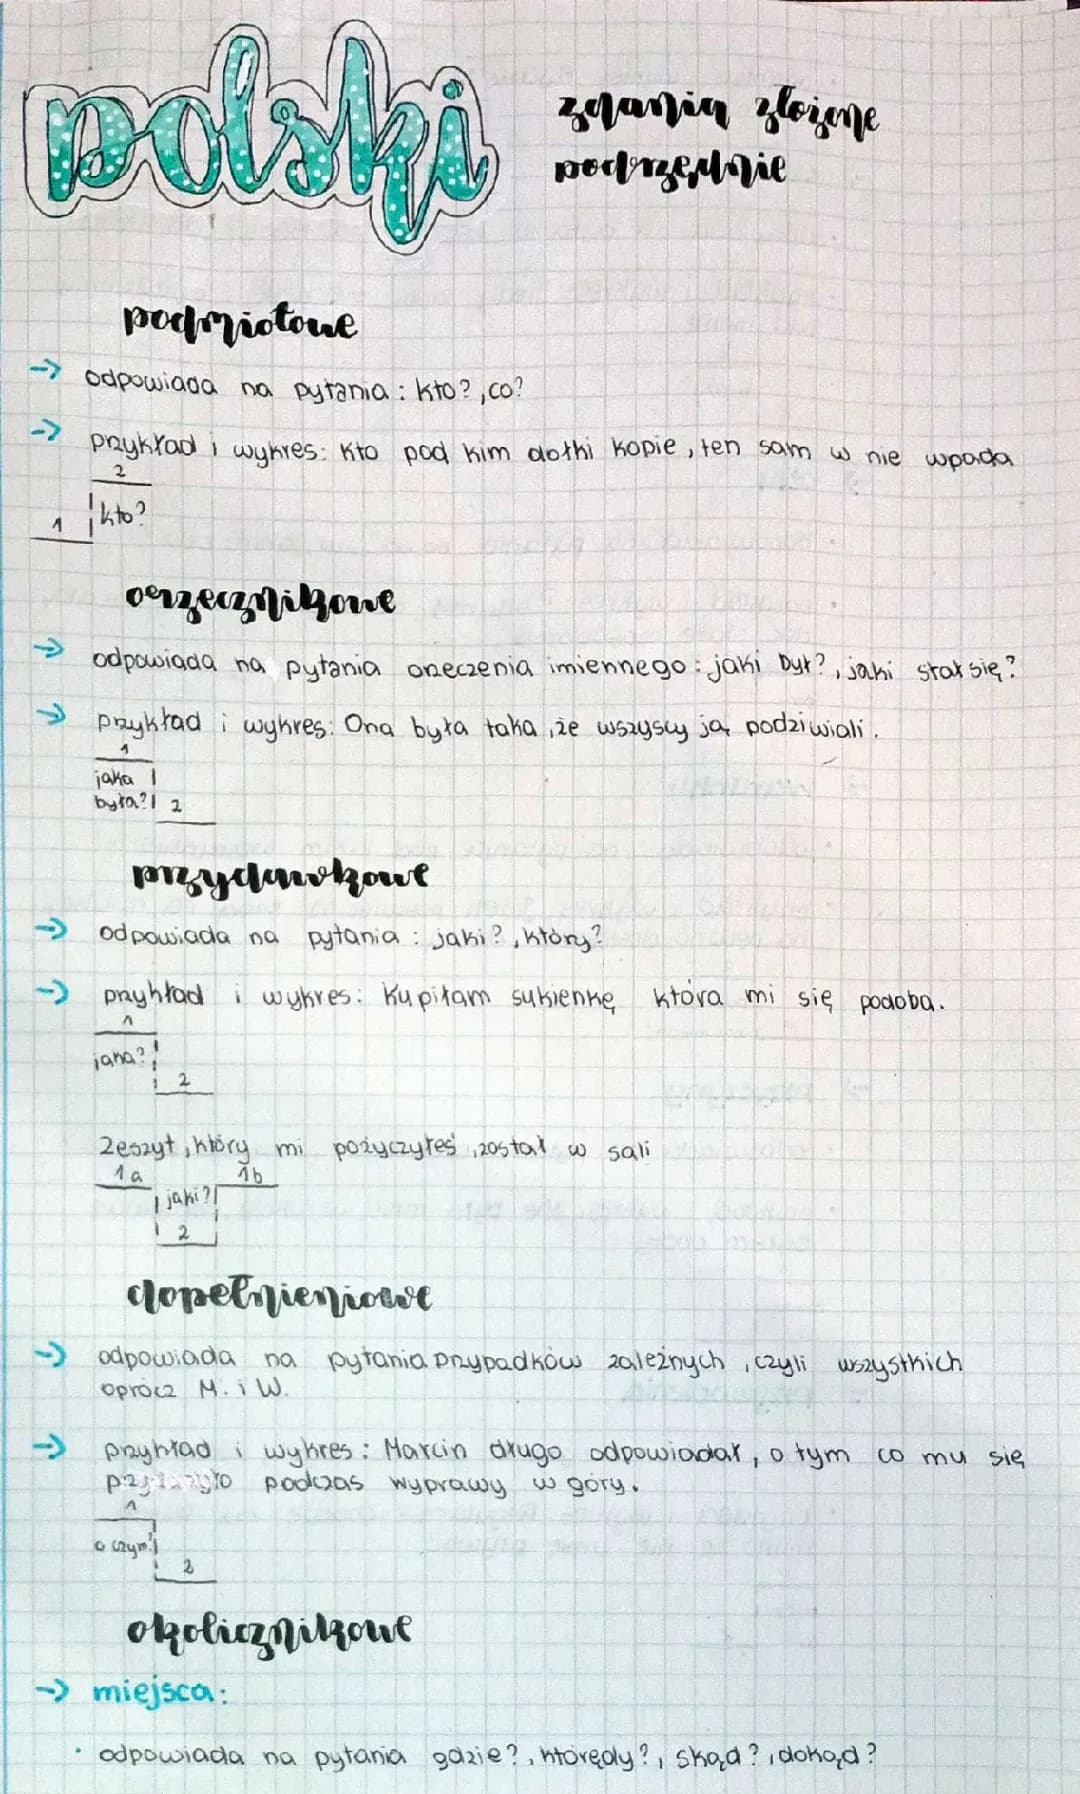 polski
zdania złożone
podrzędnie
podmiotowe
-> odpowiada na pytania : kto?, co?
-> przykład i wykres: Kto pod kim dołki kopie, ten sam w nie wpada
2
1 kto?
orzecznikowe
-> odpowiada na pytania orzeczenia imiennego : jaki był?, jaki stał się?
-> przykład i wykres: Ona była taka, że wszyscy ją podziwiali.
1
jaka
była? 2
przydawkowe
-> odpowiada na pytania : jaki?, który?
-> przykład i wykres: Kupiłam sukienkę która mi się podoba.
1
jaka?
2
Zeszyt, który mi pożyczyłeś, został w sali
1a 1b
jaki?
2
dopełnieniowe
-> odpowiada na pytania przypadków zależnych, czyli wszystkich
oprócz M. i W.
-> przykład i wykres: Marcin długo odpowiadał, o tym co mu się
podczas wyprawy w góry.
1
o czym?
2
okolicznikowe
-> miejsca:
• odpowiada na pytania gdzie?, którędy?, skąd?, dokąd?